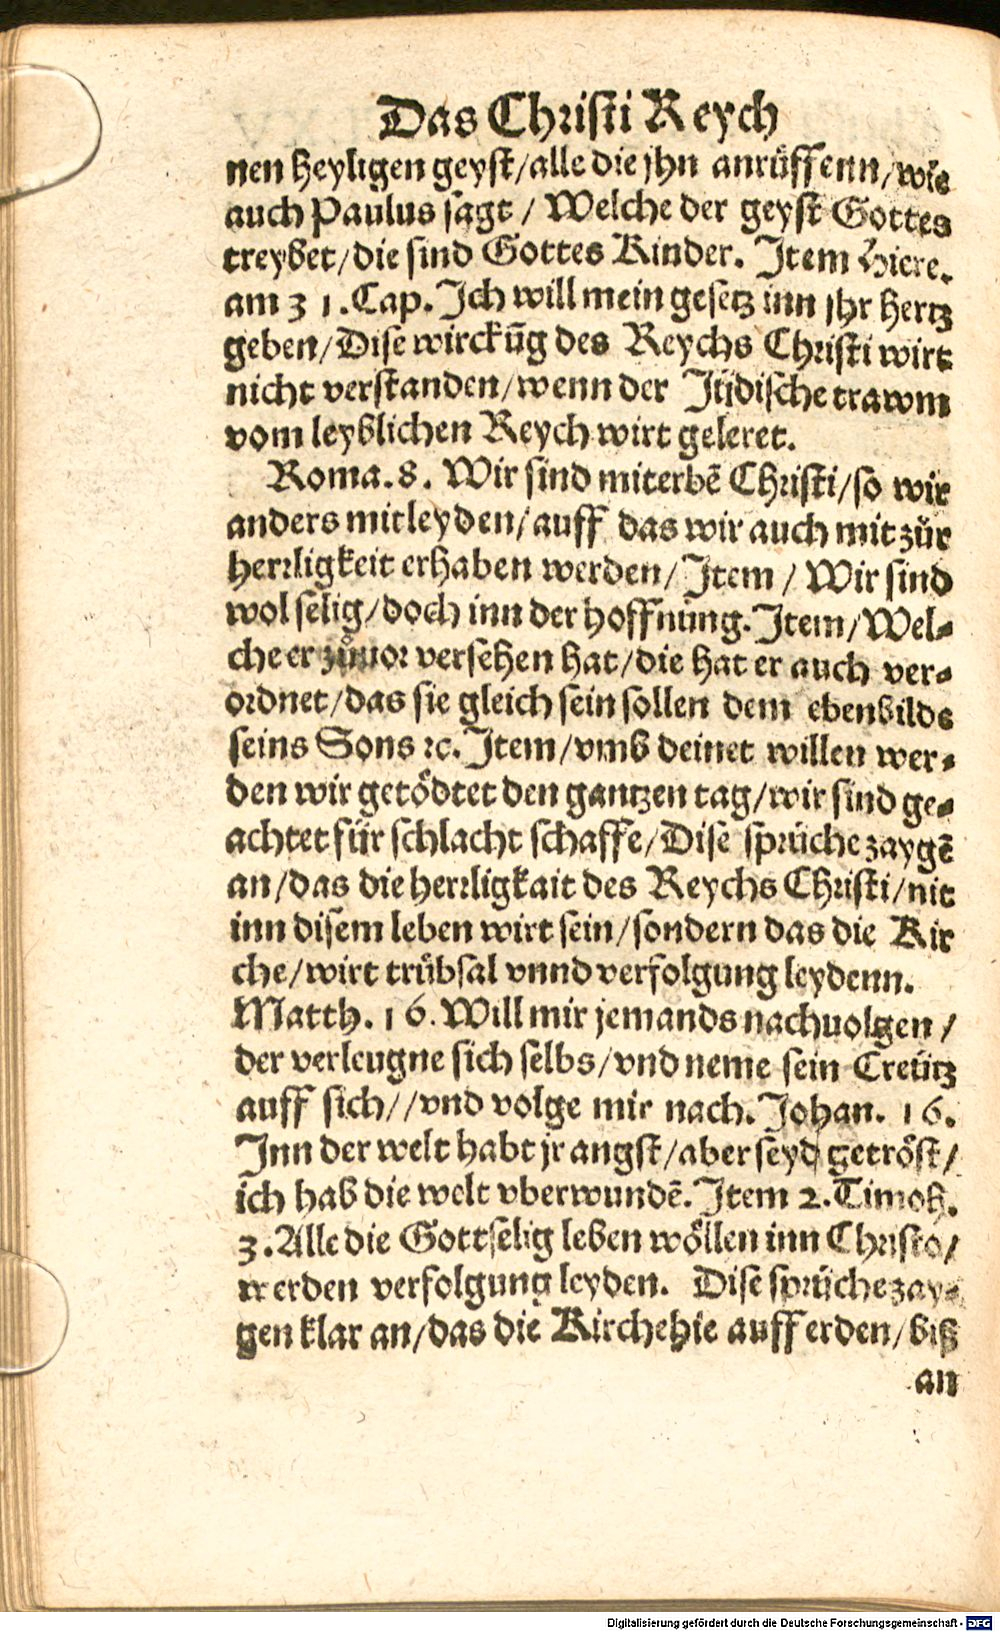 Das Christi Reych
nen heyligen geyst/alle die jhn anrüffenn/wie
auch Paulus sagt / Welche der geyst Gottes
treybet/die sind Gottes Kinder. Item Hiere.
am 31.Cap. Ich will mein gesetz inn jhr hertz
geben/Dise wirckūg des Reychs Christi wirt
nicht verstanden/wenn der Jüdische trawm
vom leyblichen Reych wirt geleret.
Roma.8. Wir sind miterbē Christi/so wir
anders mitleyden/auff das wir auch mit zůr
herrligkeit erhaben werden/Item / Wir sind
wol selig/doch inn der hoffnung.Item/Wel-
che er zůuor versehen hat/die hat er auch ver-
ordnet/das sie gleich sein sollen dem ebenbilde
seins Sons ꝛc.Item/vmb deinet willen wer-
den wir getödtet den gantzen tag/wir sind ge-
achtet für schlacht schaffe/Dise sprüche zaygē
an/das die herrligkait des Reychs Christi/nit
inn disem leben wirt sein/sondern das die Kir
che/wirt trübsal vnnd verfolgung leydenn.
Matth. 16. Will mir jemands nachuolgen /
der verleugne sich selbs/vnd neme sein Creütz
auff sich//vnd volge mir nach. Johan. 16.
Inn der welt habt jr angst/aber seyd getröst/
ich hab die welt vberwundē.Item 2.Timoh.
3.Alle die Gottselig leben wöllen inn Christo/
werden verfolgung leyden. Dise sprüche zay-
gen klar an/das die Kirche hie auff erden/biß
an
Digitalisierung gefördert durch die Deutsche Forschungsgemeinschaft - DFG